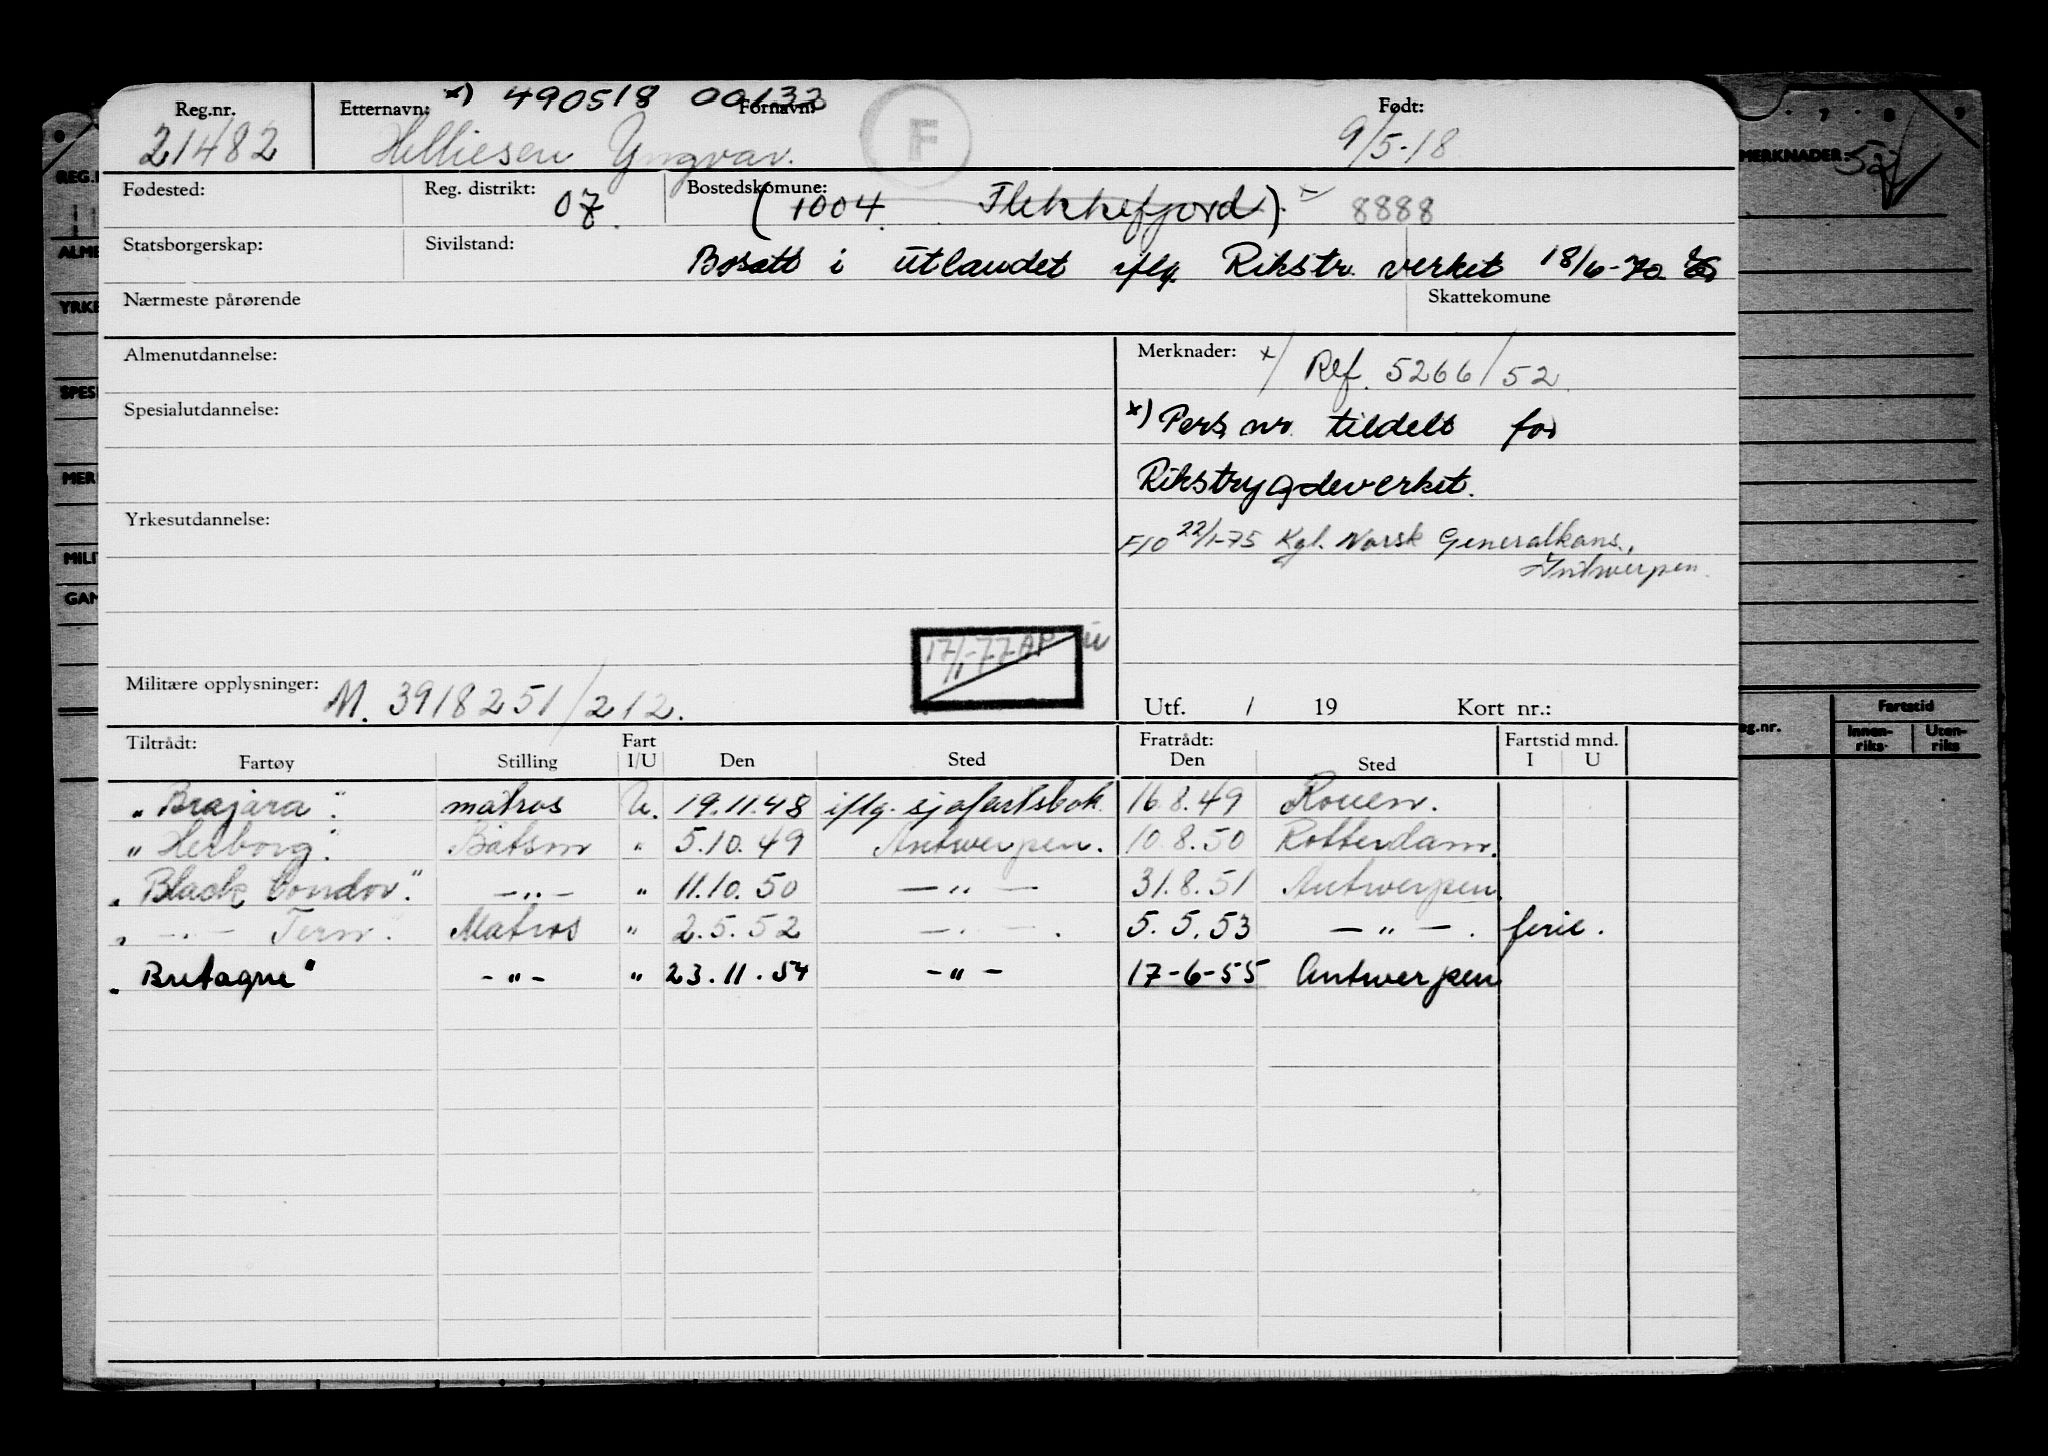 Reg.nr. Etternavn: x) 490518 00133 Fornavn: Født:
21482 Helliesen Yngvar. F 9/5-18
Fødested: Reg. distrikt: 07. Bostedskomune: (1004 Flekkefjord). 8888
Statsborgerskap: Sivilstand: Bosatt i utlandet iflg. Rikstr. verket 18/6-70
Nærmeste pårørende Skattekomune
Almenutdannelse: Merknader: x/ Ref. 5266/52
Spesialutdannelse: x) Pers. nr. tildelt for
Rikstrygdeverket.
Yrkesutdannelse: F/O 22/1-75 Kgl. Norsk Generalkons.,
Antwerpen.
17/1-77 AP
Militære opplysninger: M. 3918251/212. Utf. / 19 Kort nr.:
Tiltrådt: Fart Fratrådt: Fartstid mnd.
Fartøy Stilling I/U Den Sted Den Sted I U
"Brajara". matros U. 19.11.48 iflg. sjøfartsbok 16.8.49 Rouen.
"Herborg". Båtsm " 5.10.49 Antwerpen. 10.8.50 Rotterdam.
"Black Condor". — " — " 11.10.50 — " — 31.8.51 Antwerpen.
" — " — Tern. Matros " 2.5.52 — " — . 5.5.53 — " — . ferie.
"Bretagne" - " - " 23.11.54 - " - 17-6-55 Antwerpen
MERKNADER: 52
7 8 9
REG.
ALME
YRKE
SPESI
MER
MILI
GAN
eg.nr. Fartstid
Innen-riks- Uten-riks